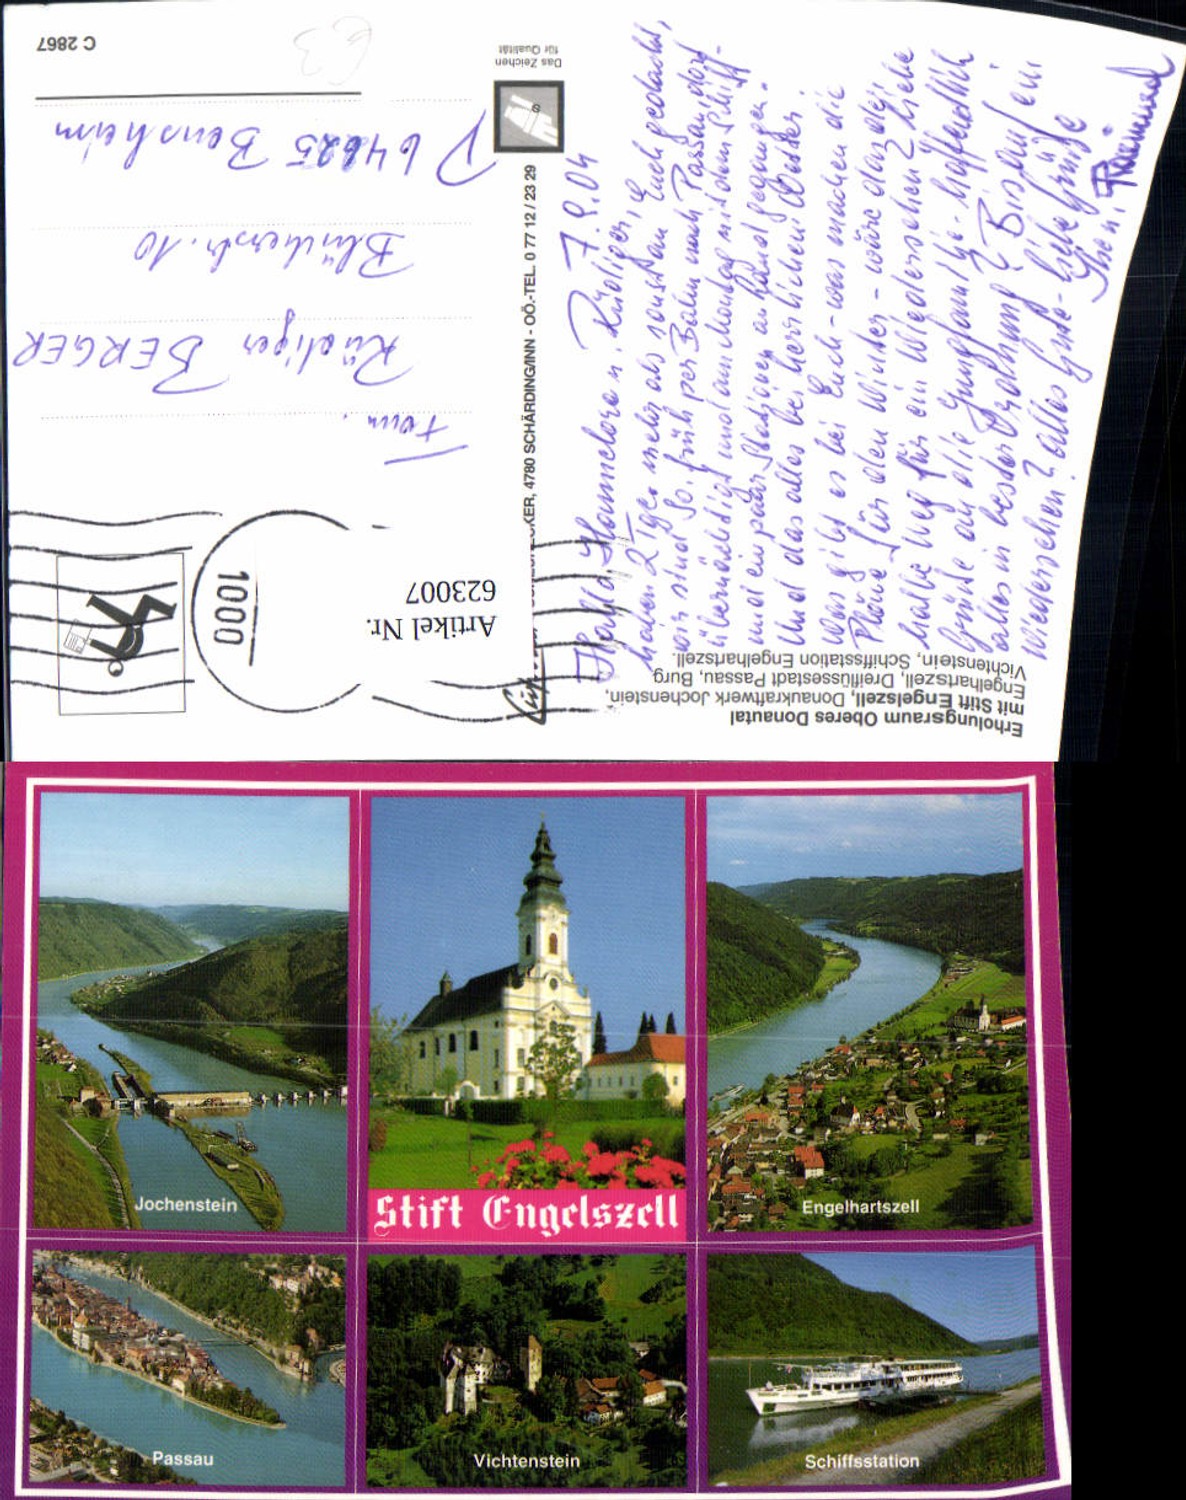 Erholungsraum Oberes Donautal
mit Stift Engelszell, Donaukraftwerk Jochenstein,
Engelhartszell, Dreiflüssestadt Passau, Burg
Vichtenstein, Schiffsstation Engelhartszell.
7.9.04
Hannelore u. Rüdiger,
haben 2 Tge. mehr als sonst an Euch gedacht,
wir sind So. früh per Bahn nach Passau, dort
übernächtigt und am Montag mit dem Schiff
und ein paar Stationen an Land gegangen.
Und das alles bei herrlichem Wetter.
Was gibt es bei Euch - was machen die
Pläne für den Winter - wäre das der
halbe Weg für ein Wiedersehen? Liebe
Grüße an die Jungfamilie - hoffentlich
alles in bester Ordnung? Bis auf ein
Wiedersehen? alles Gute - liebe Grüße
DECKER, 4780 SCHÄRDING/INN - OÖ.-TEL. 0 77 12 / 23 29
Das Zeichen
für Qualität
Artikel Nr.
623007
1000
Fam.
Rüdiger BERGER
Blücherstr. 10
D 64625 Bensheim
C 2867
63
Jochenstein
Stift Engelszell
Engelhartszell
Passau
Vichtenstein
Schiffsstation